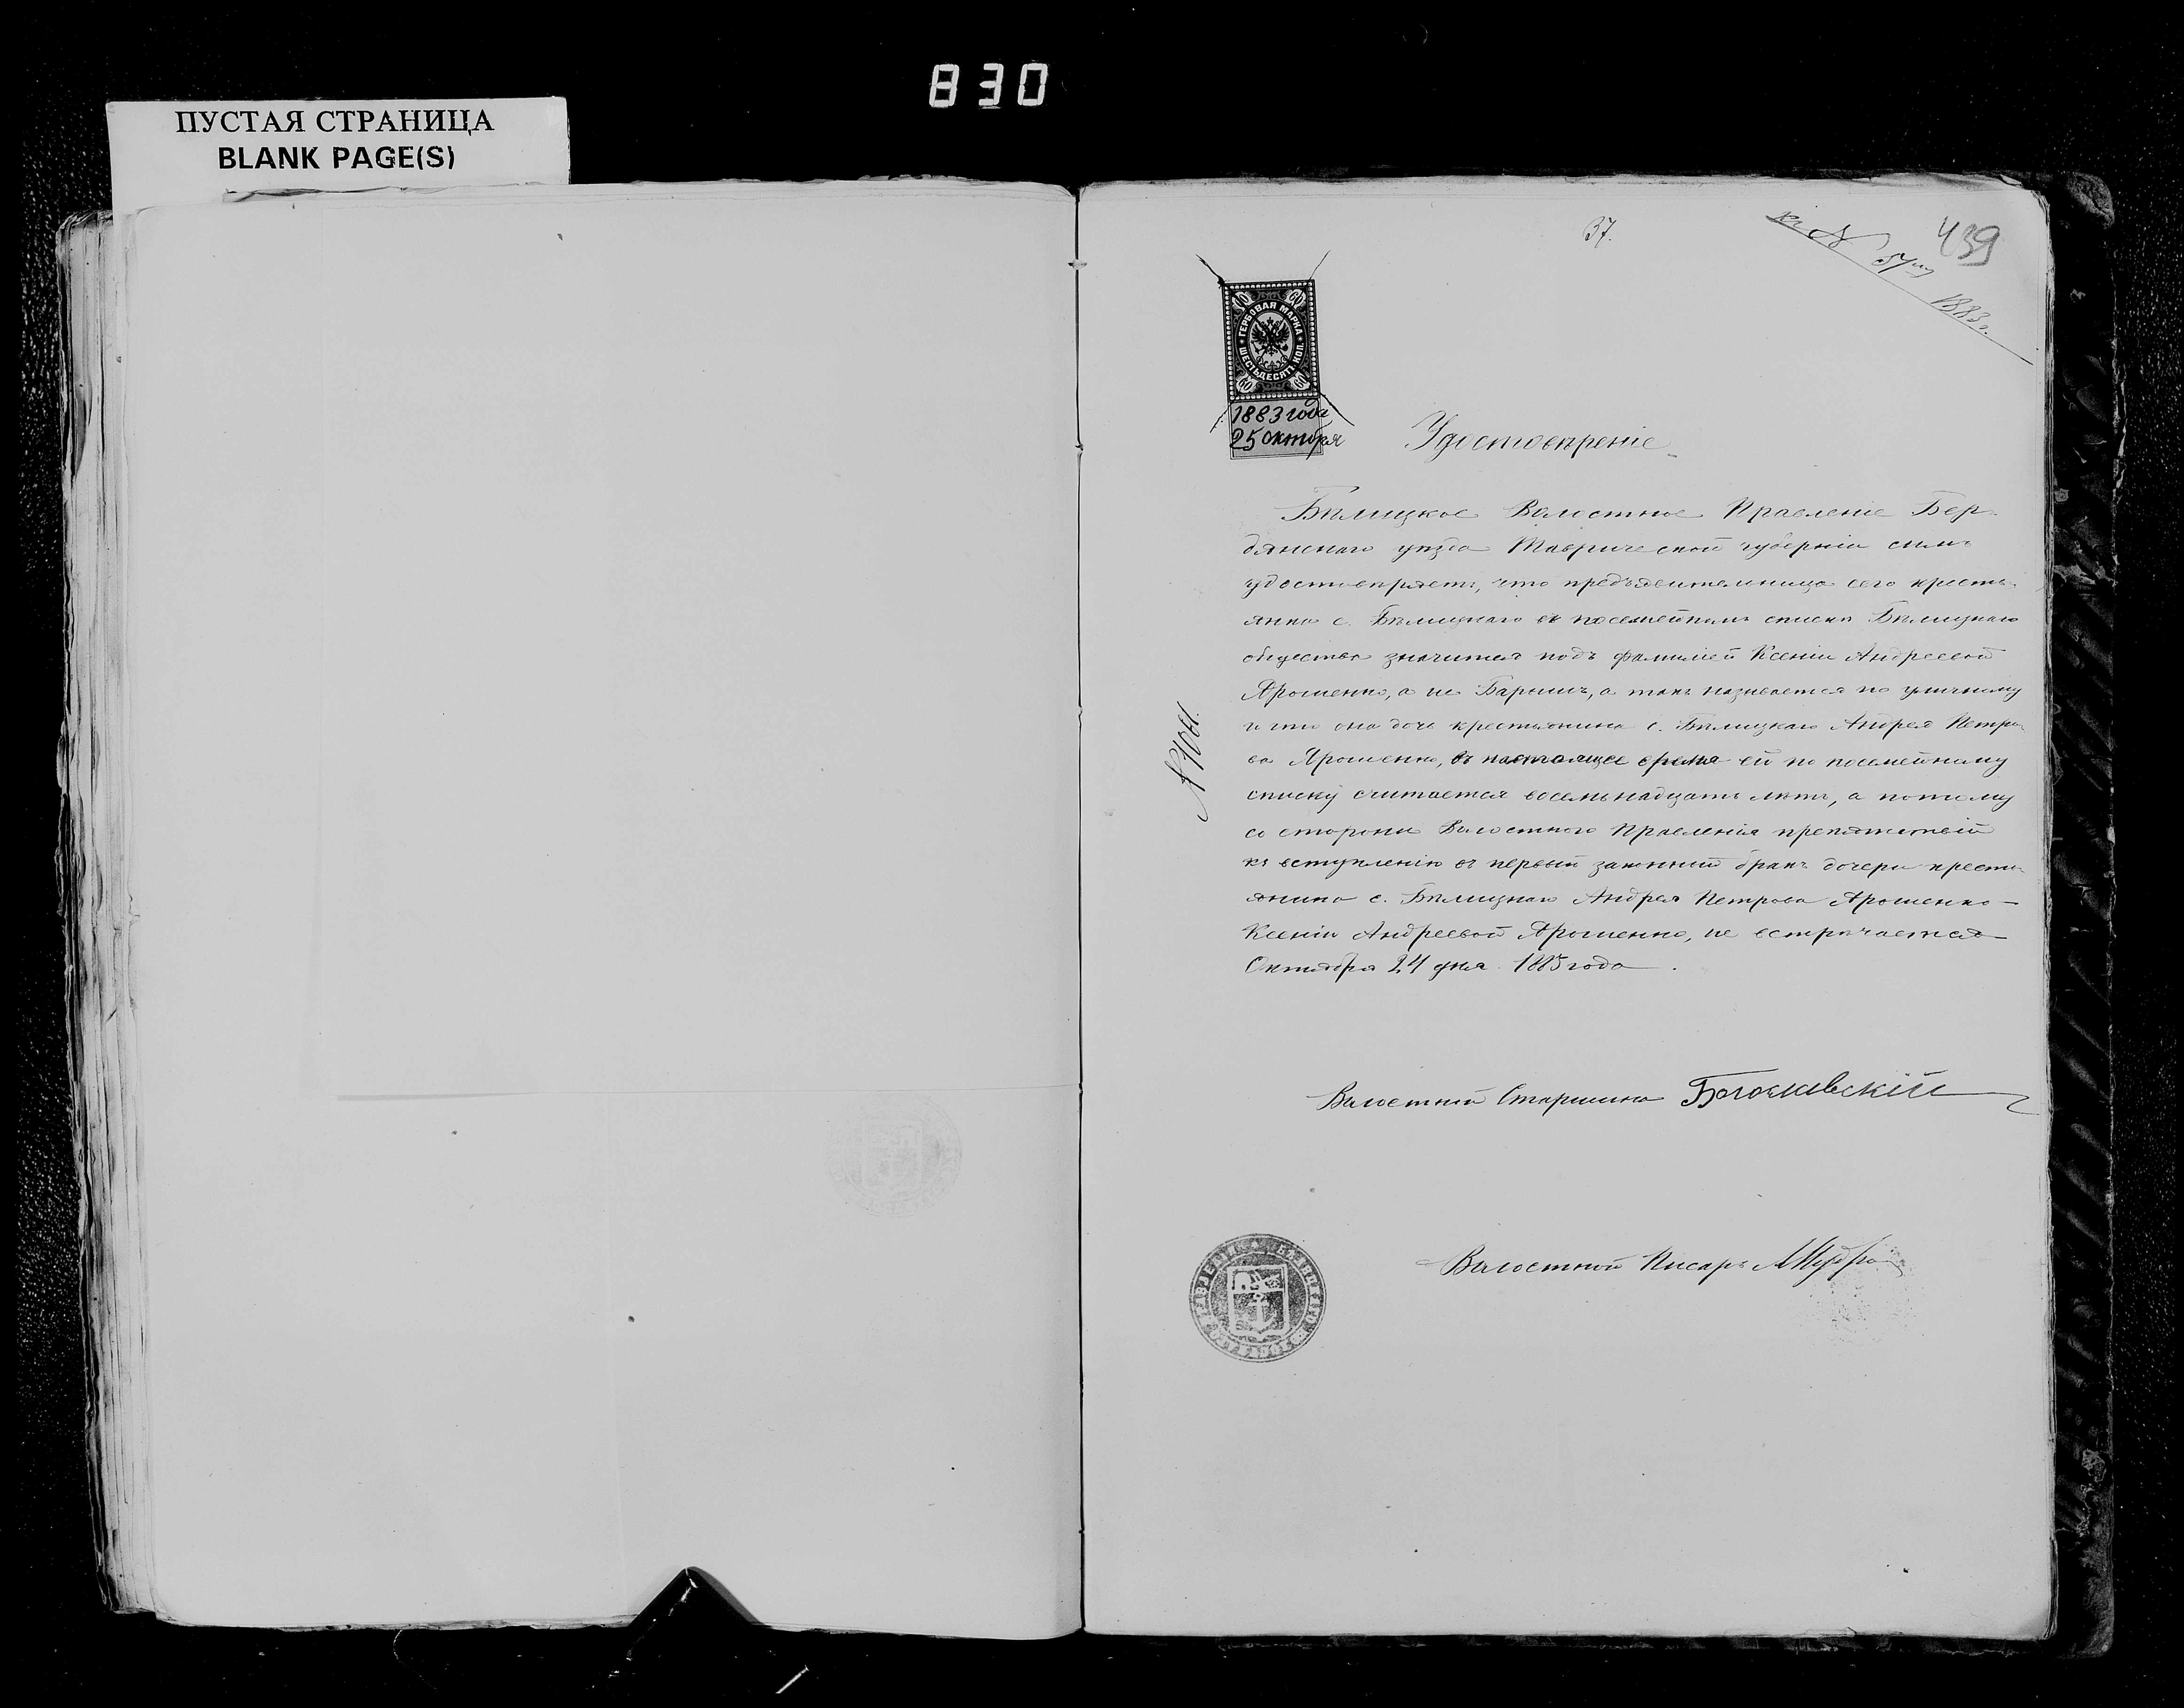 830
ПУСТАЯ СТРАНИЦА
BLANK PAGE(S)
37.
439
къ №
1883 г.
ГЕРБОВАЯ МАРКА
ШЕСТЬДЕСЯТ КОП.
60 60
60 60
1883 года
25 октября
Удостовѣреніе
Бѣлицкое Волостное Правленіе Бер-
дянскаго уѣзда Таврической губерніи симъ
удостовѣряетъ, что предъявительница сего кресть-
янка с. Бѣлицкаго въ посемейномъ списке Бѣлицкаго
общества значится подъ фамиліей Ксеніи Андреевой
Ярошенко, а не Барышъ, а такъ называется по уличному
и что она дочь крестьянина с. Бѣлицкаго Андрея Петро-
ва Ярошенко, въ настоящее время ей по посемейному
списку считается восемьнадцать лѣтъ, а потому
со стороны Волостного Правленія препятствій
къ вступленію въ первый законный бракъ дочери кресть-
янина с. Бѣлицкаго Андрея Петрова Ярошенко —
Ксеніи Андреевой Ярошенко, не встрѣчается
Октября 24 дня 1883 года.
Волостный Старшина
Волостной Писарь